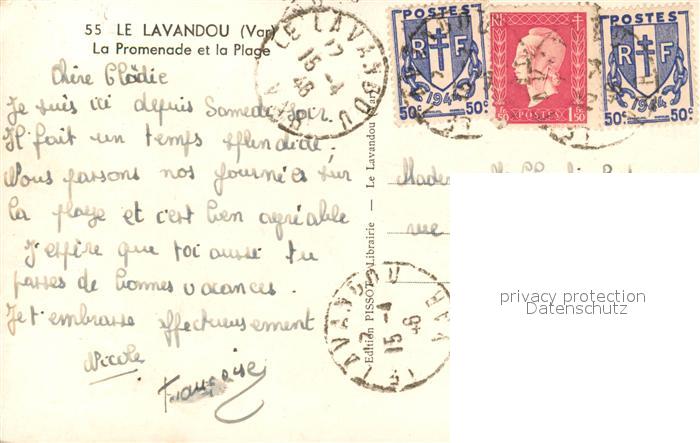 55 LE LAVANDOU (Var)
La Promenade et la Plage
Chère Clodie
Je suis ici depuis Samedi soir.
Il fait un temps splendide.
Nous passons nos journées sur
la plage et c'est bien agréable
J'espère que toi aussi tu
passes de bonnes vacances.
Je t'embrasse affectueusement
Nicole
Françoise
LE LAVANDOU
17
15-4
46
VAR
POSTES
RF
1944
50c 50c
RF
1F50 POSTES 1F50
POSTES
RF
1944
50c 50c
Edition PISSOT, Librairie — Le Lavandou (Var)
Madem
rue
LE LAVANDOU
17
15-4
46
VAR
privacy protection
Datenschutz